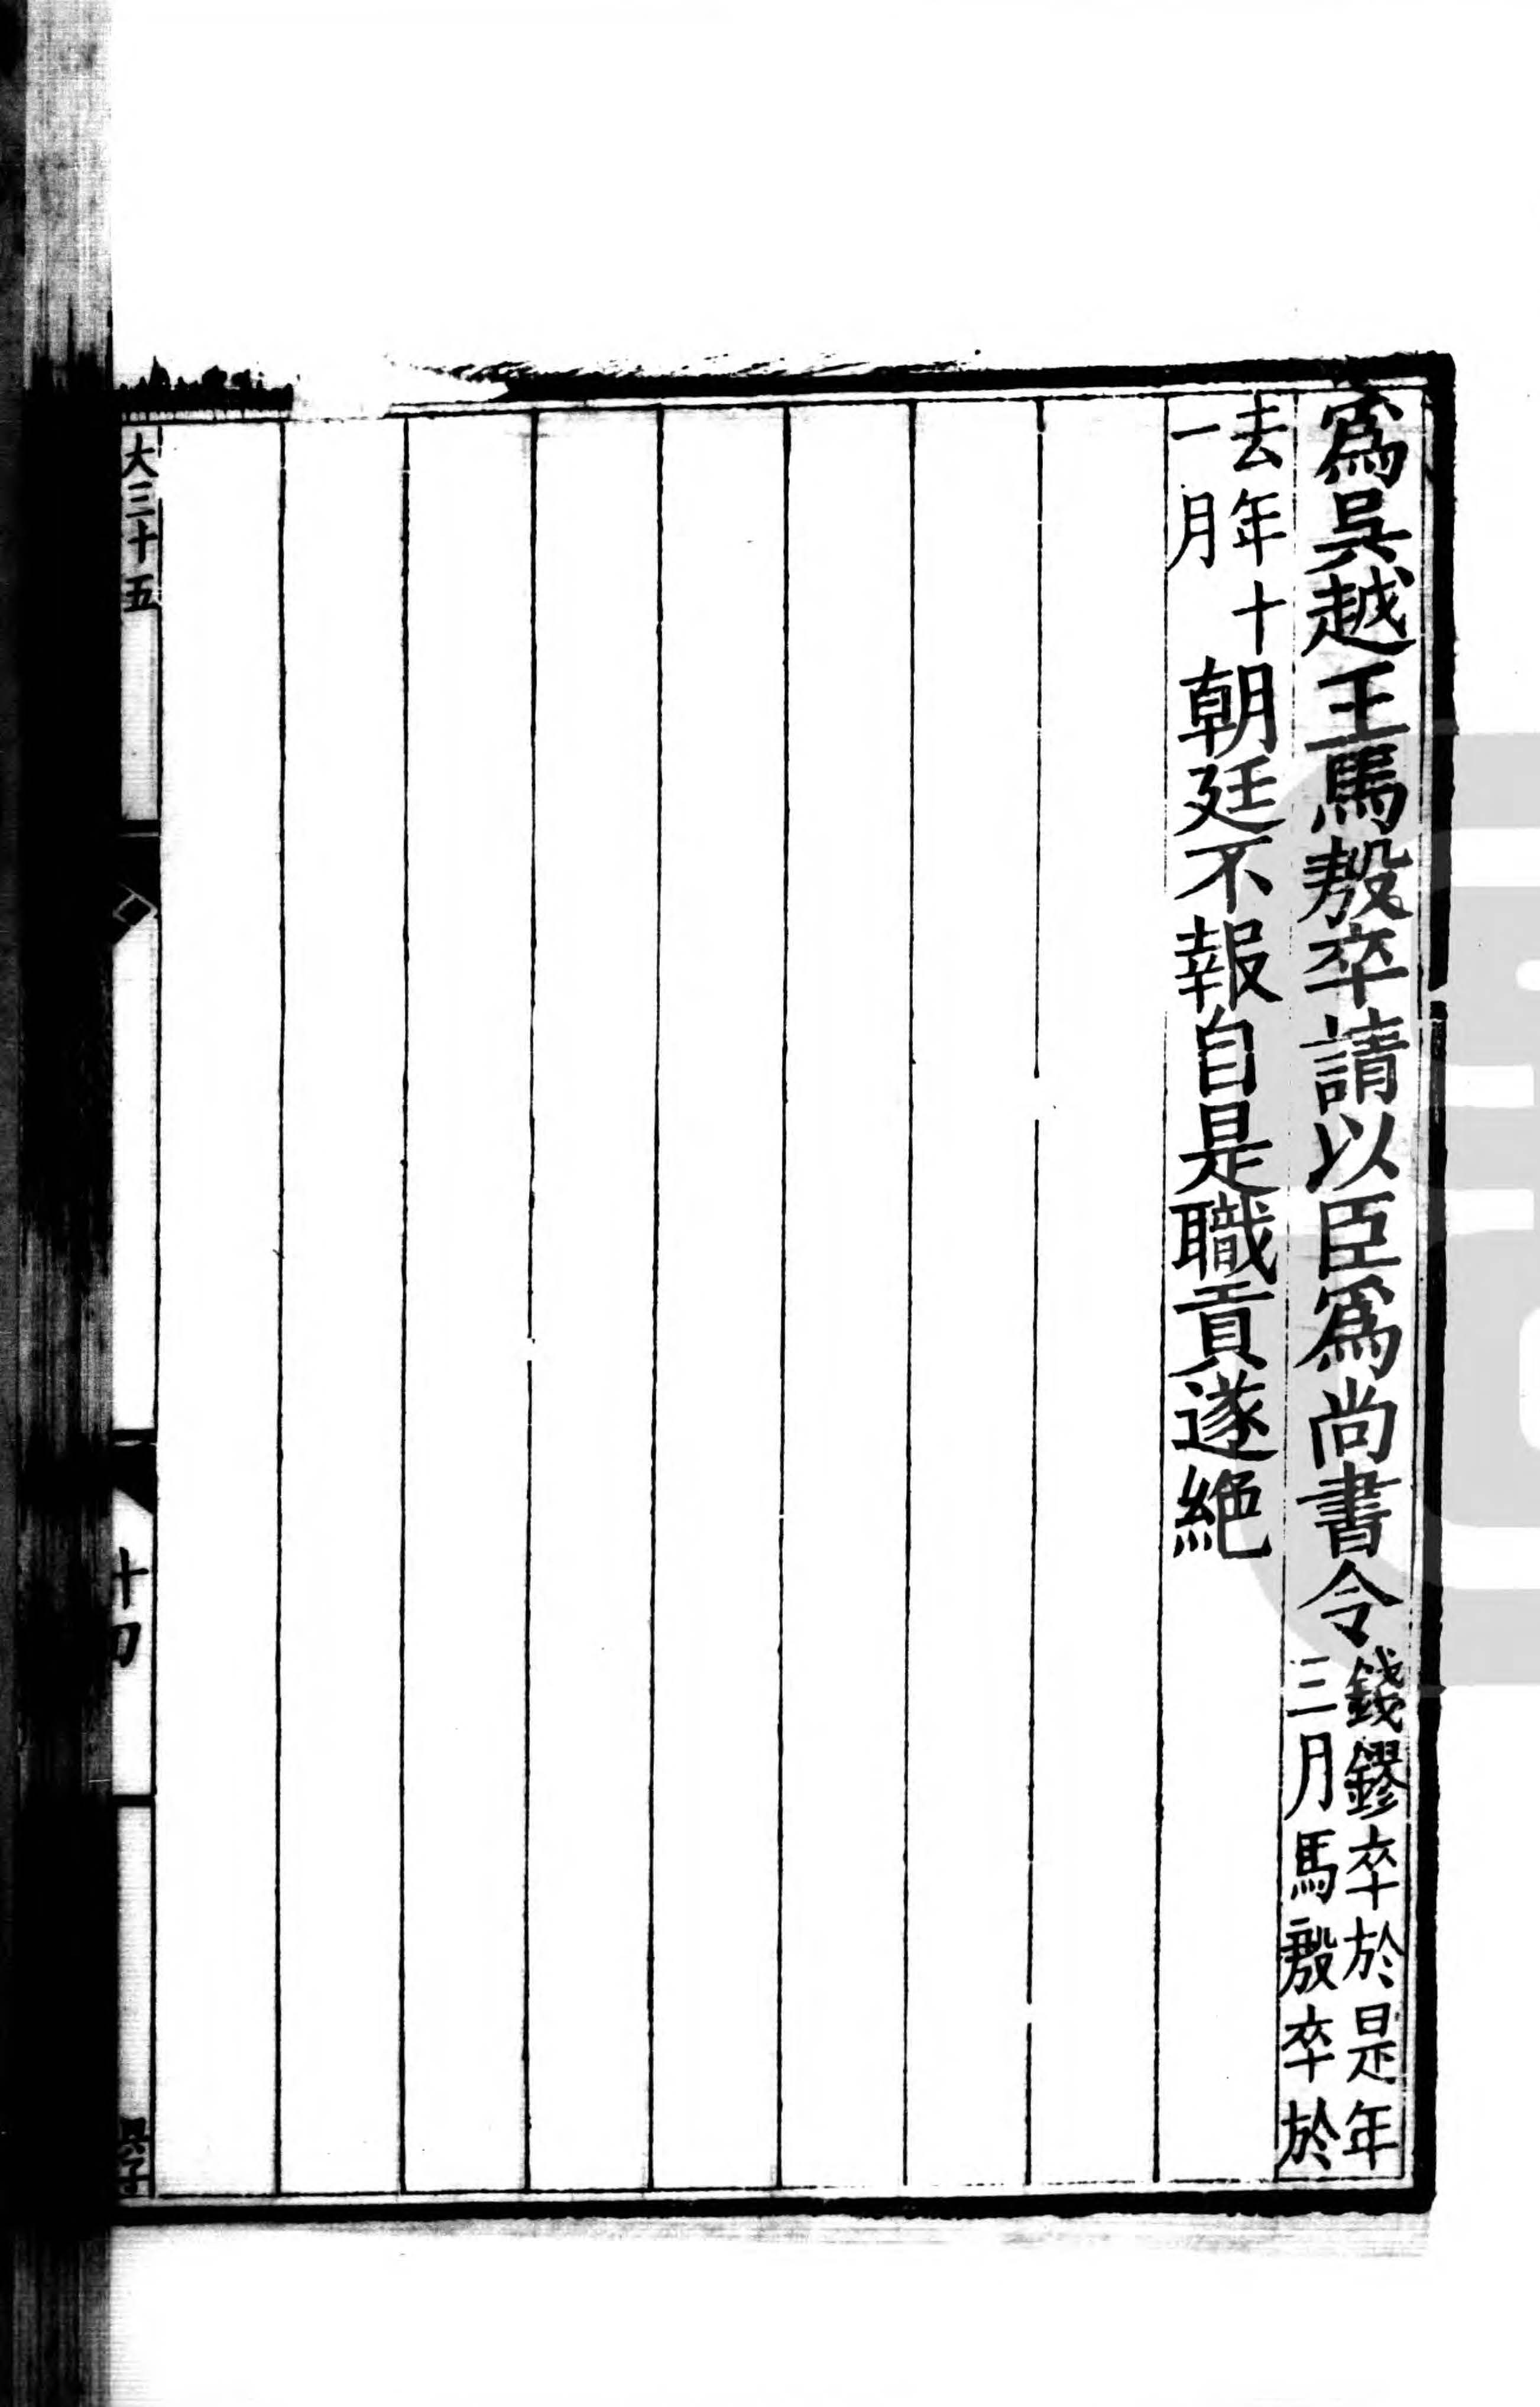 爲吳越王馬殷卒請以臣爲尚書令錢鏐卒於是年三月馬殷卒於
去年十一月朝廷不報自是職貢遂絕
大三十五